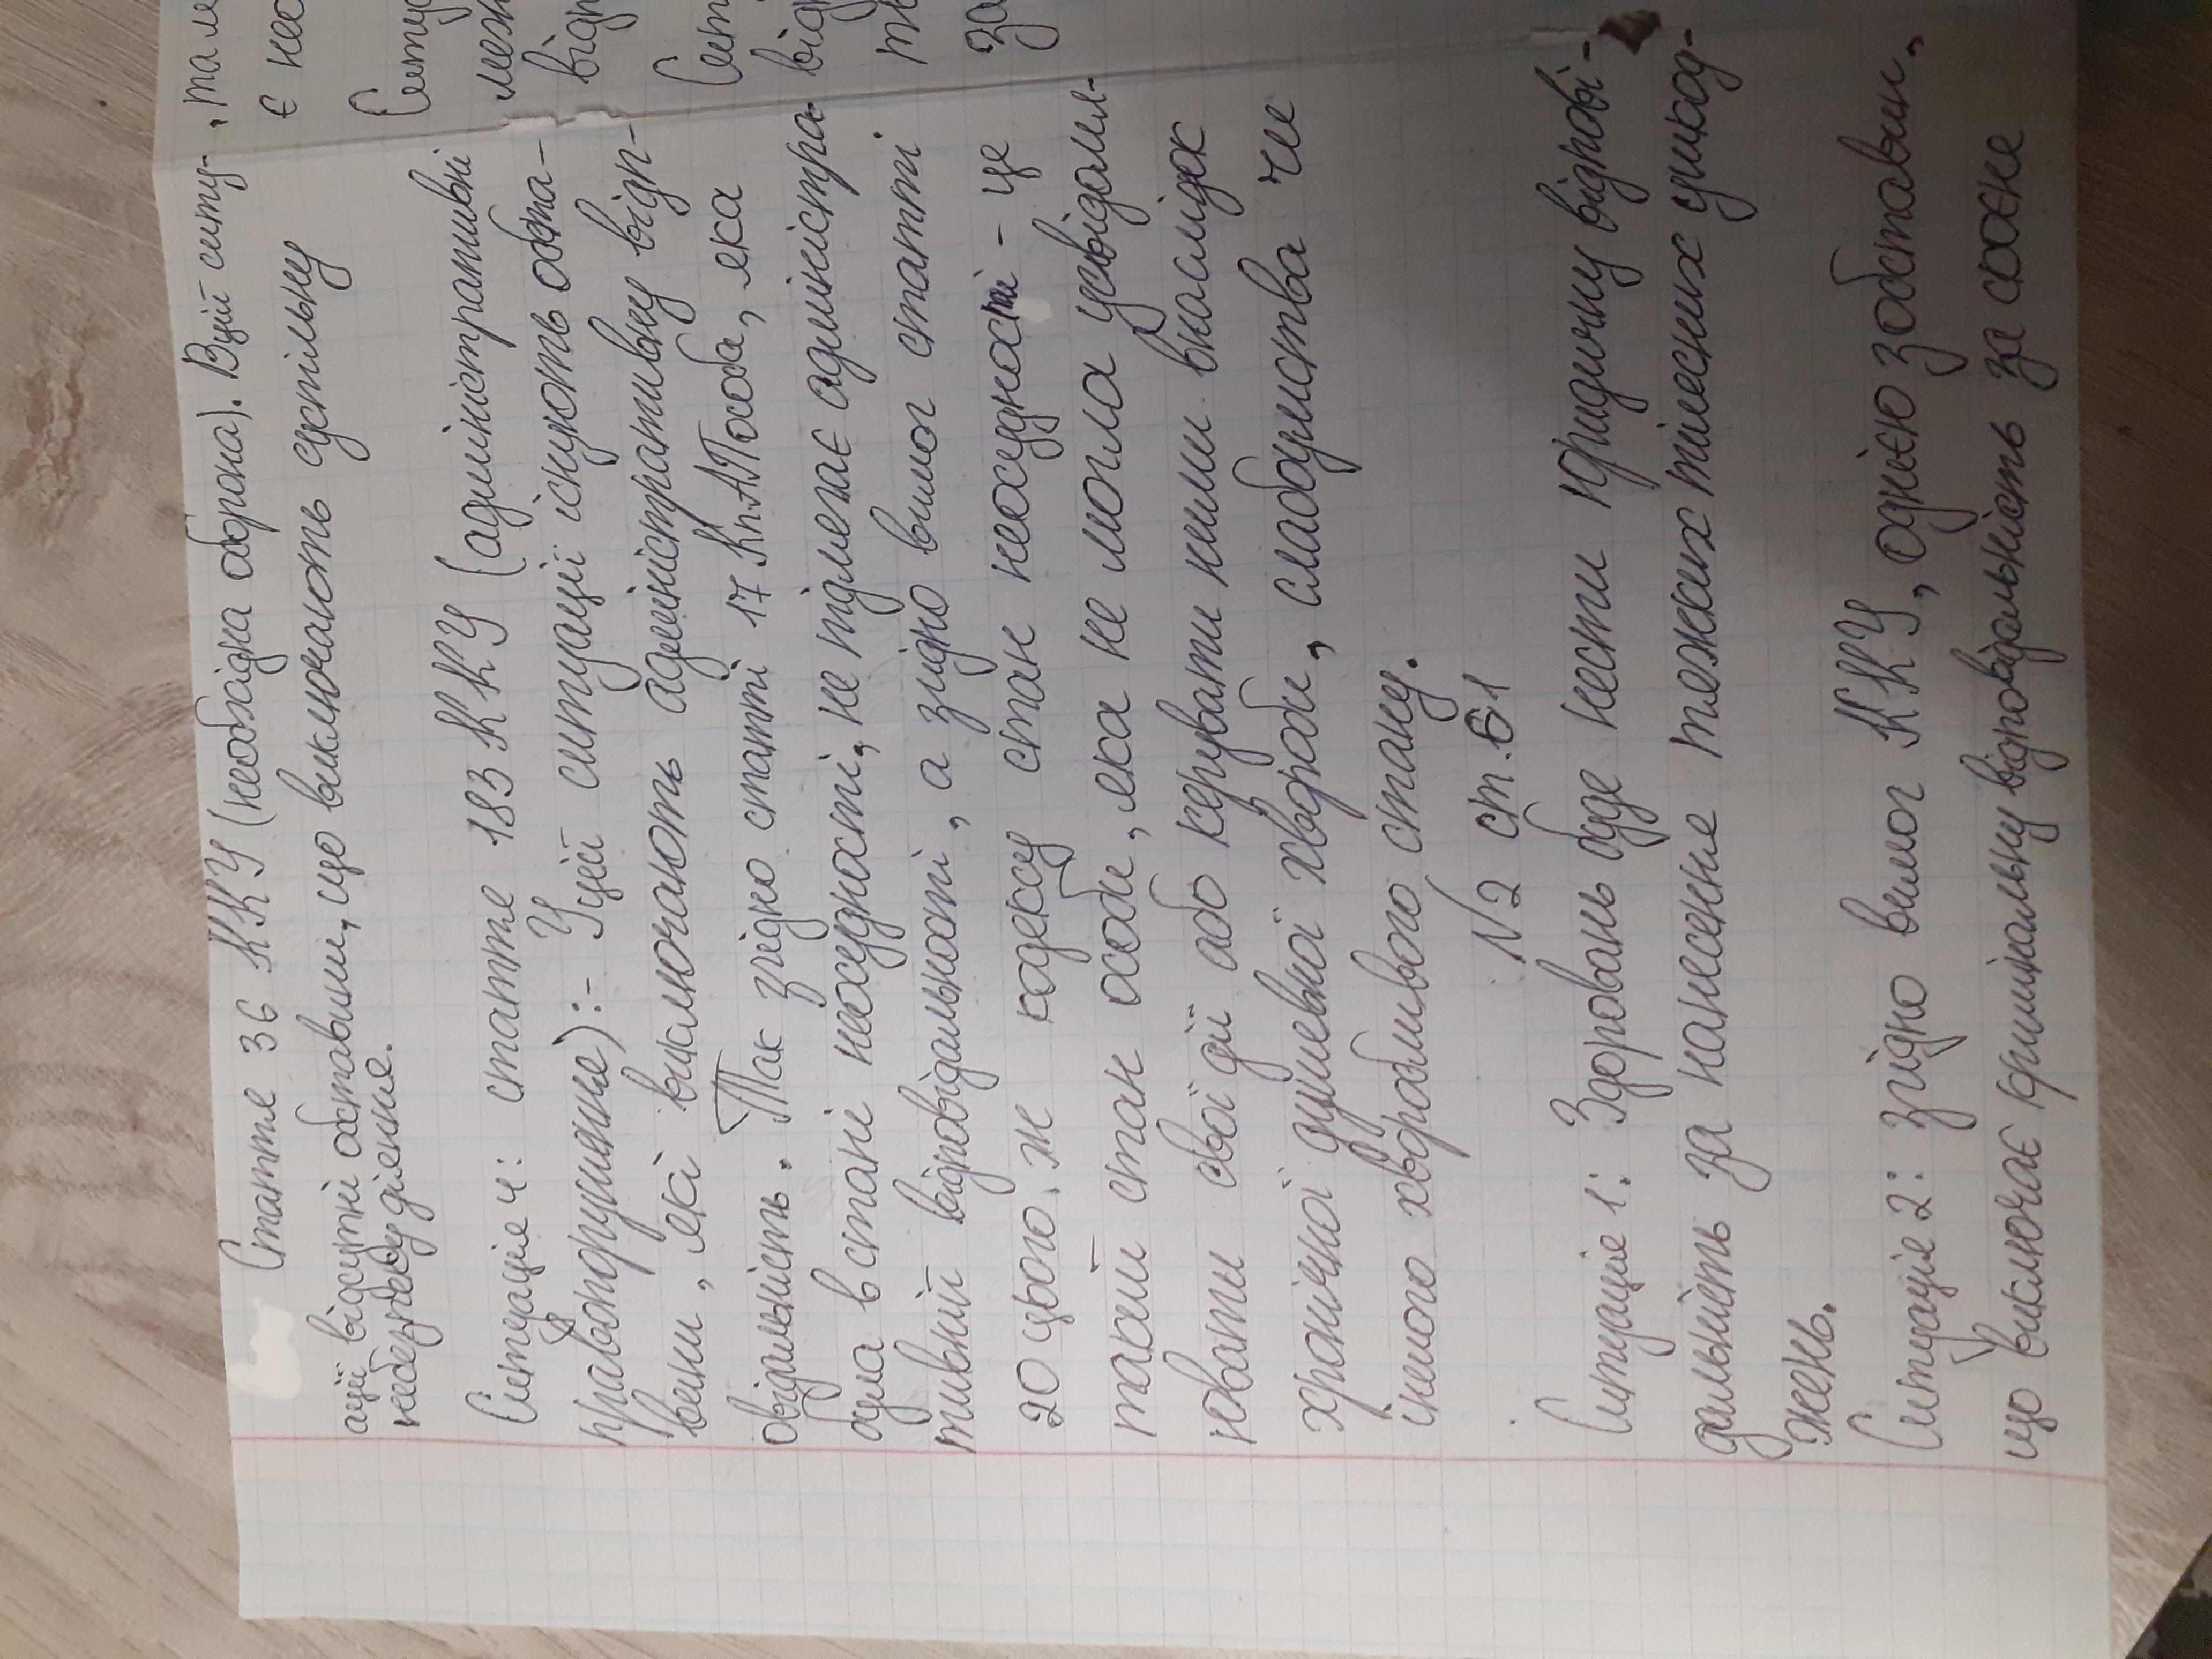 Стаття 36 ККУ (необхідна оборона). В цій ситу-
ації відсутні обставини, що виключають суспільну
небезпеку діяння.
Ситуація 4: стаття 183 ККУ (адміністративні
правопорушення):- У цій ситуації існують обста-
вини, які виключають адміністративну відп-
овідальність. Так згідно статті 17 КпАП особа, яка
була в стані неосудності, не підлягає адміністра-
тивній відповідальності, а згідно вимог статті
20 цього ж кодексу стан неосудності - це
такий стан особи, яка не могла усвідомл-
ювати свої дії або керувати ними внаслідок
хронічної душевної хвороби, слабоумства чи
іншого хворобливого стану.
N2 ст. 61
Ситуація 1: Здоровань буде нести юридичну відпові-
дальність за нанесення тяжких тілесних ушкод-
жень.
Ситуація 2: згідно вимог ККУ, однією з обставин,
що виключає кримінальну відповідальність за скоєне
, там
є нео
Ситуа
меж
відп
Сит
від
та
за